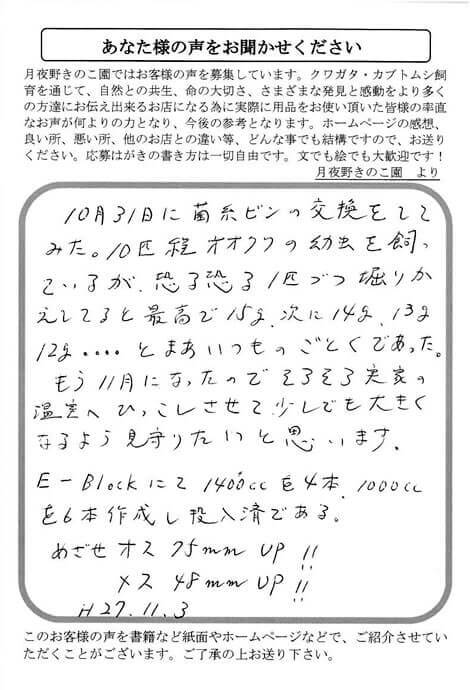 あなた様の声をお聞かせください
月夜野きのこ園ではお客様の声を募集しています。クワガタ・カブトムシ飼
育を通じて、自然との共生、命の大切さ、さまざまな発見と感動をより多く
の方達にお伝え出来るお店になる為に実際に用品をお使い頂いた皆様の率直
なお声が何よりの力となり、今後の参考となります。ホームページの感想、
良い所、悪い所、他のお店との違い等、どんな事でも結構ですので、お送り
ください。応募はがきの書き方は一切自由です。文でも絵でも大歓迎です！
月夜野きのこ園　より
10月31日に菌糸ビンの交換をしてみた。
10匹程オオクワの幼虫を飼っ
ているが、恐る恐る1匹づつ堀りか
えしてると最高で15g、次に14g、13g
12g‥‥とまあいつものごとくであった。
もう11月になったのでそろそろ実家の
温室へひっこしさせて少しでも大きく
なるよう見守りたいと思います。
E-Blockにて1400ccを4本、1000cc
を6本作成し投入済である。
めざせオス 75mm UP !!
メス 48mm UP !!
H27.11.3
このお客様の声を書籍など紙面やホームページなどで、ご紹介させてい
ただくことがございます。ご了承の上お送り下さい。